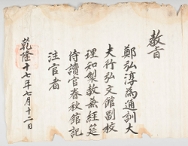 教旨
鄭弘淳為通訓大
夫行弘文館副校
理知製教兼經筵
侍讀官春秋館記
注官者
乾隆十七年七月十二日